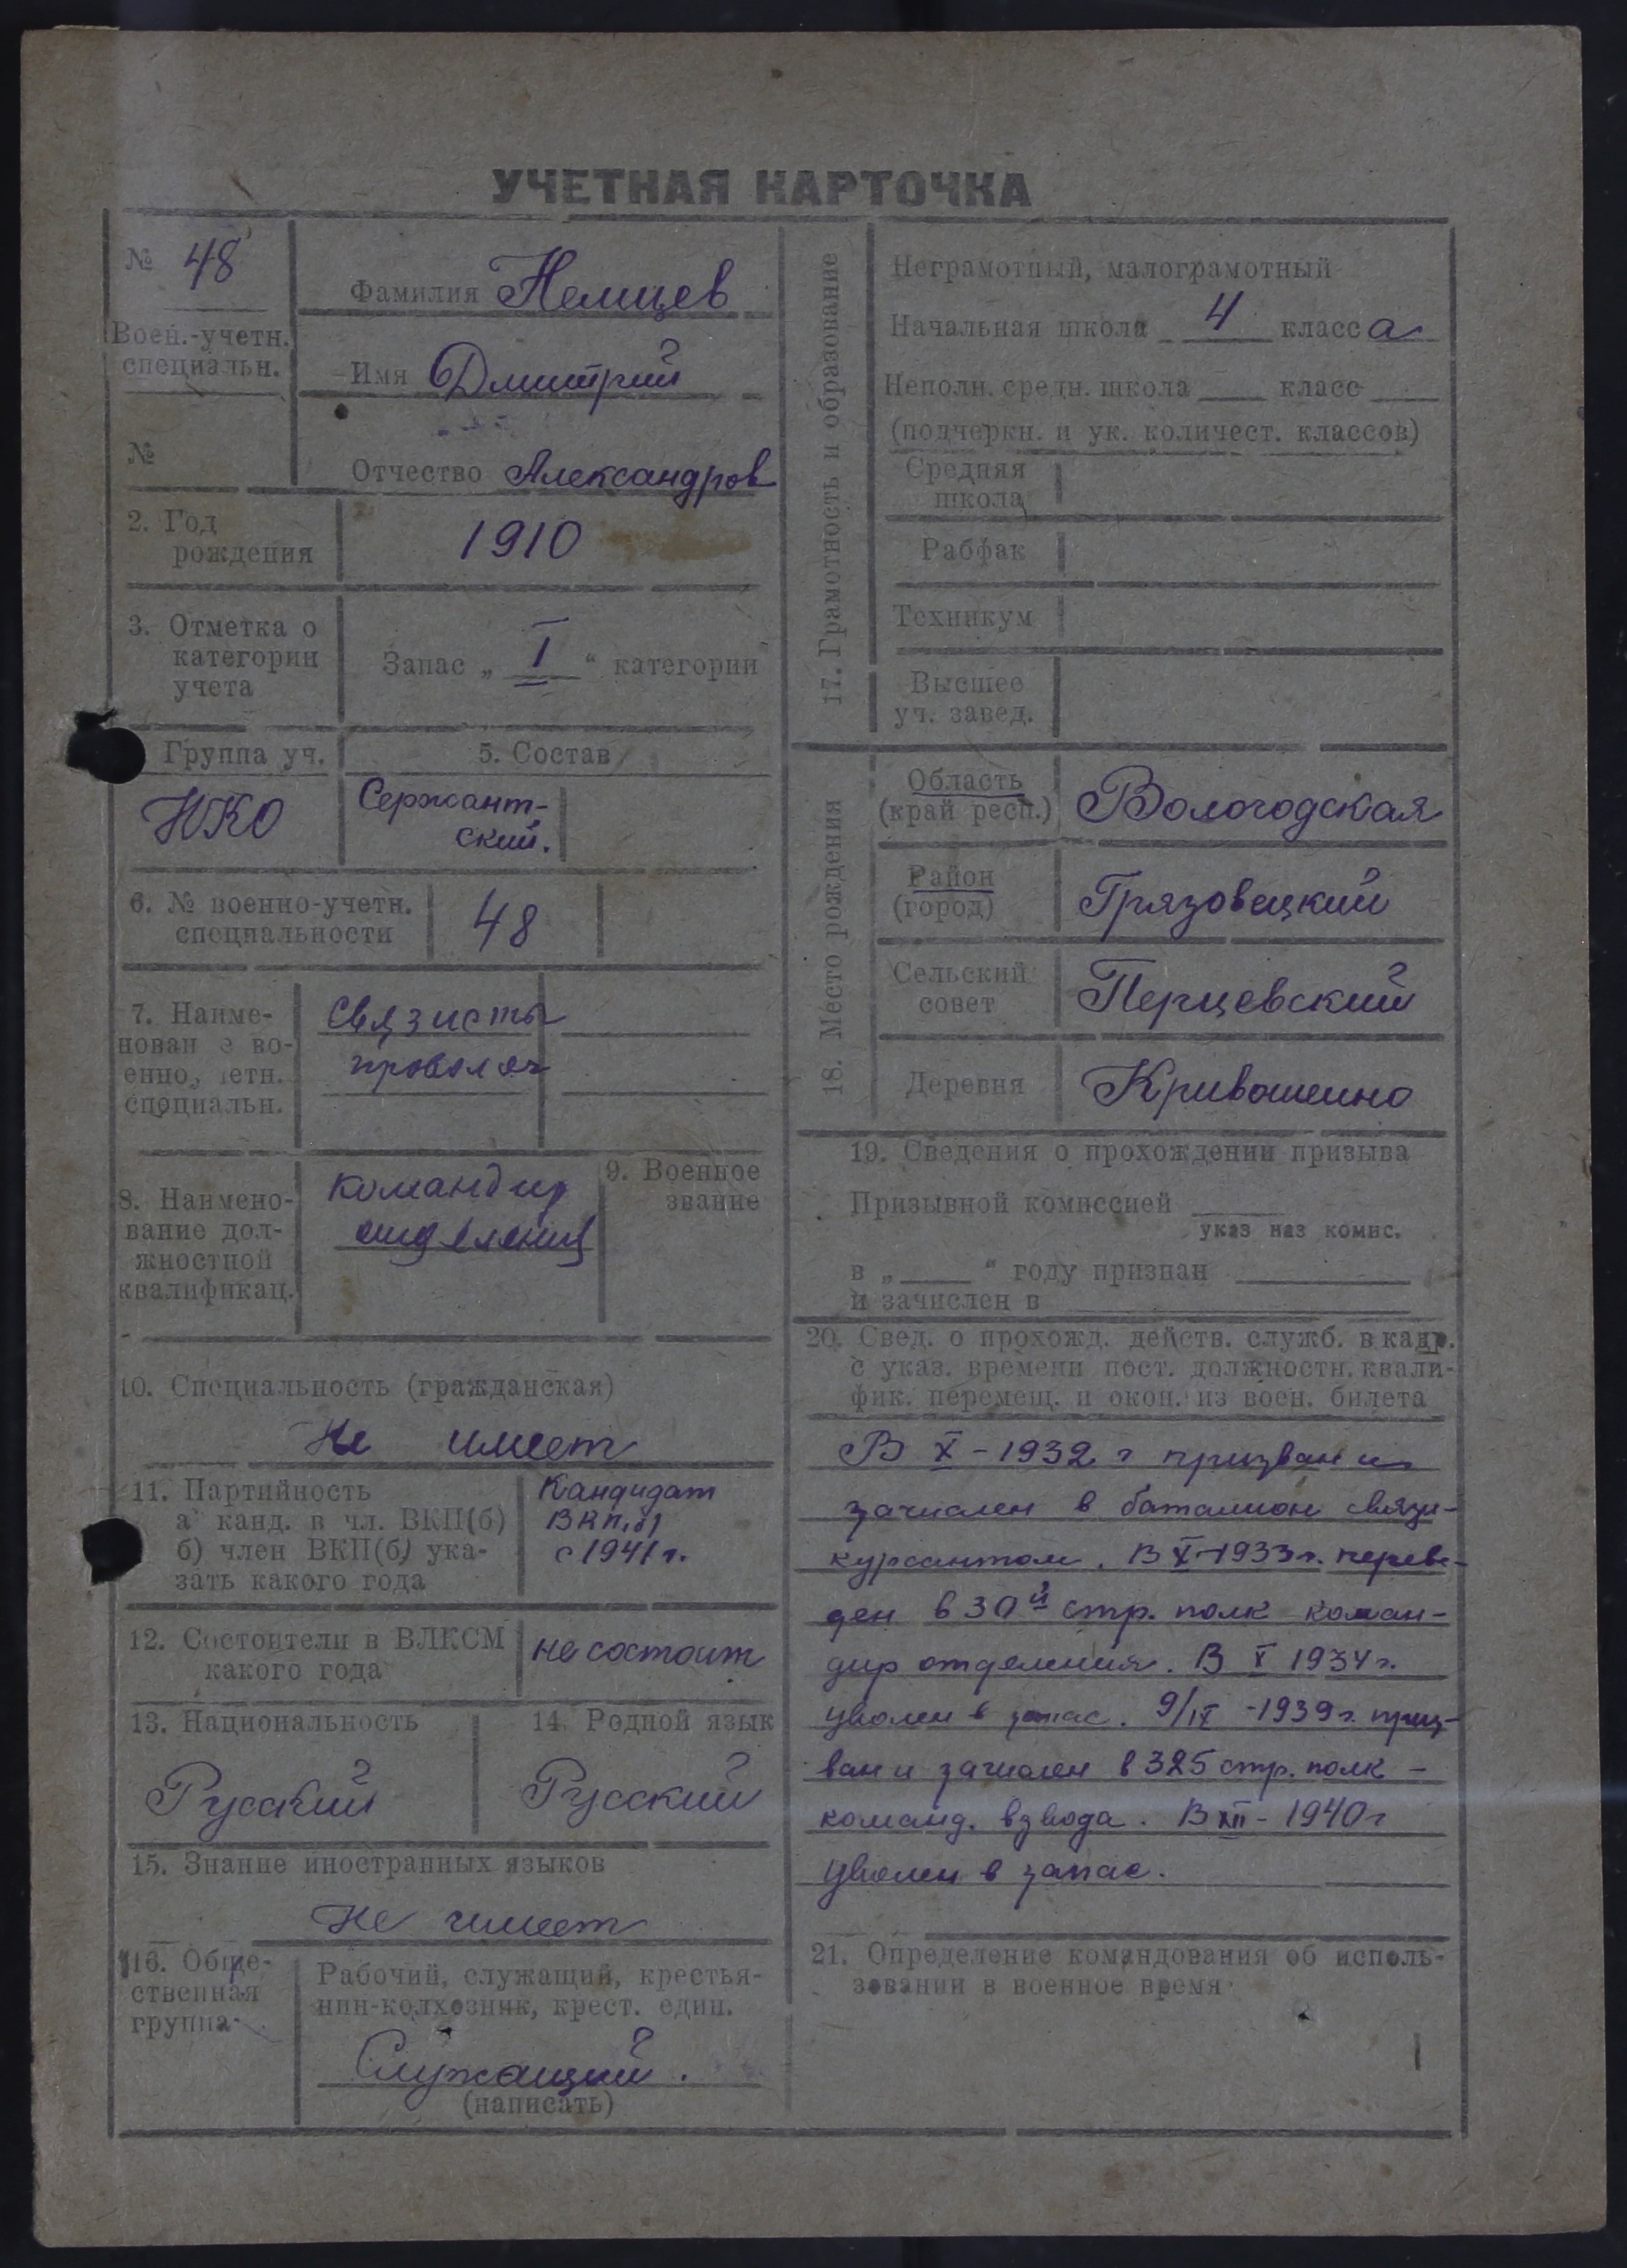 УЧЕТНАЯ КАРТОЧКА
№ 48
Воен.-учетн.
специальн.
№
Фамилия Немцев
Имя Дмитрий
Отчество Александров
2. Год
рождения
1910
3. Отметка о
категории
учета
Запас „ I “ категории
Группа уч.
НКО
5. Состав
Сержант-
ский.
6. № военно-учетн.
специальности
48
7. Наиме-
нован е во-
енно, четн.
специальн.
Связисты
проволоч
8. Наимено-
вание дол-
жностной
квалификац.
командир
отделения
9. Военное
звание
10. Специальность (гражданская)
Не имеет
11. Партийность
а канд. в чл. ВКП(б)
б) член ВКП(б) ука-
зать какого года
Кандидат
ВКП(б)
с 1941 г.
12. Состоит ли в ВЛКСМ
какого года
не состоит
13. Национальность
Русский
14. Родной язык
Русский
15. Знание иностранных языков
Не имеет
16. Обще-
ственная
группа
Рабочий, служащий, крестья-
нин-колхозник, крест. един.
Служащий.
(написать)
17. Грамотность и образование
Неграмотный, малограмотный
Начальная школа 4 класса
Неполн. средн. школа класс
(подчеркн. и ук. количест. классов)
Средняя
школа
Рабфак
Техникум
Высшее
уч. завед.
18. Место рождения
Область
(край респ.)
Вологодская
Район
(город)
Грязовецкий
Сельский
совет
Перцевский
Деревня
Кривошеино
19. Сведения о прохождении призыва
Призывной комиссией
указ наз комис.
в „ “ году признан
и зачислен в
20. Свед. о прохожд. действ. служб. в кадр.
с указ. времени пост. должностн. квали-
фик. перемещ. и окон. из воен. билета
В X - 1932 г призван и
зачислен в батальон связи-
курсантом. В X-1933 г. переве-
ден в 30й стр. полк коман-
дир отделения. В X 1934 г.
уволен в запас. 9/IX - 1939 г. приз-
ван и зачислен в 325 стр. полк -
команд. взвода. В XII - 1940 г
уволен в запас.
21. Определение командования об исполь-
зовании в военное время